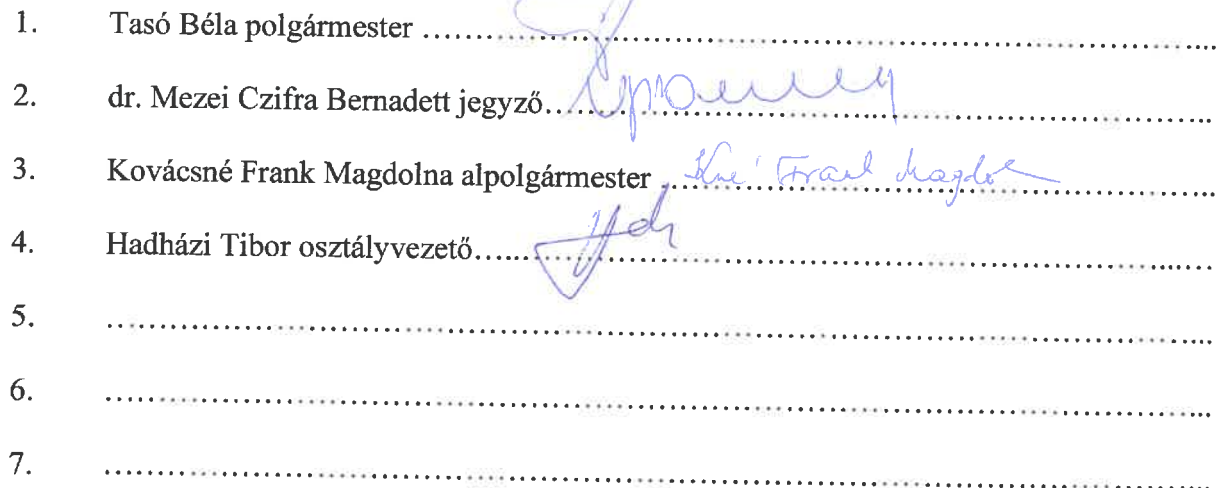 1. Tasó Béla polgármester ........................................
2. dr. Mezei Czifra Bernadett jegyző........................................
3. Kovácsné Frank Magdolna alpolgármester ........................................ Kné Frank Magdol
4. Hadházi Tibor osztályvezető........................................
5. ........................................
6. ........................................
7. ........................................